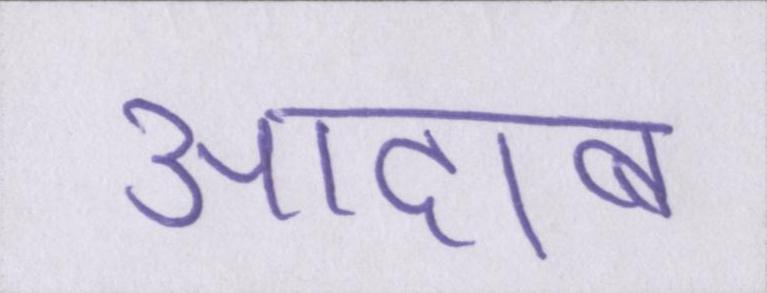 आदाब